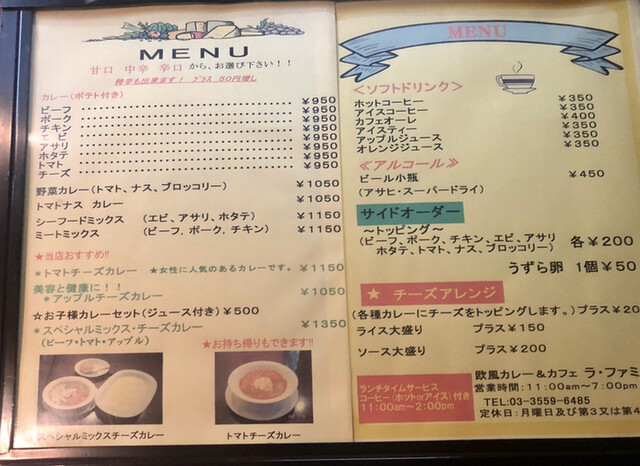 MENU
甘口 中辛 辛口 から、お選び下さい！！
特辛も出来ます！ プラス 50円増し
カレー（ポテト付き）
ビーフ ¥950
ポーク ¥950
チキン ¥950
エビ ¥950
アサリ ¥950
ホタテ ¥950
トマト ¥950
チーズ ¥950
野菜カレー（トマト、ナス、ブロッコリー） ¥1050
トマトナス カレー ¥1050
シーフードミックス （エビ、アサリ、ホタテ） ¥1150
ミートミックス （ビーフ、ポーク、チキン） ¥1150
★当店おすすめ!!
＊トマトチーズカレー ★女性に人気のあるカレーです。 ¥1150
美容と健康に！！
＊アップルチーズカレー ¥1050
☆お子様カレーセット（ジュース付き）¥500
＊スペシャルミックス・チーズカレー ¥1350
（ビーフ・トマト・アップル）
★お持ち帰りもできます!!
スペシャルミックスチーズカレー
トマトチーズカレー
MENU
＜ソフトドリンク＞
ホットコーヒー ¥350
アイスコーヒー ¥350
カフェオーレ ¥400
アイスティー ¥350
アップルジュース ¥350
オレンジジュース ¥350
≪アルコール≫
ビール小瓶 ¥450
（アサヒ・スーパードライ）
サイドオーダー
～トッピング～
（ビーフ、ポーク、チキン、エビ、アサリ
ホタテ、トマト、ナス、ブロッコリー） 各¥200
うずら卵 1個¥50
★ チーズアレンジ
（各種カレーにチーズをトッピングします。）プラス¥20
ライス大盛り プラス¥150
ソース大盛り プラス¥200
ランチタイムサービス
コーヒー（ホットorアイス）付き
11:00am～2:00pm
欧風カレー＆カフェ ラ・ファミ
営業時間：11:00am～7:00pm
TEL:03-3559-6485
定休日：月曜日及び第3又は第4